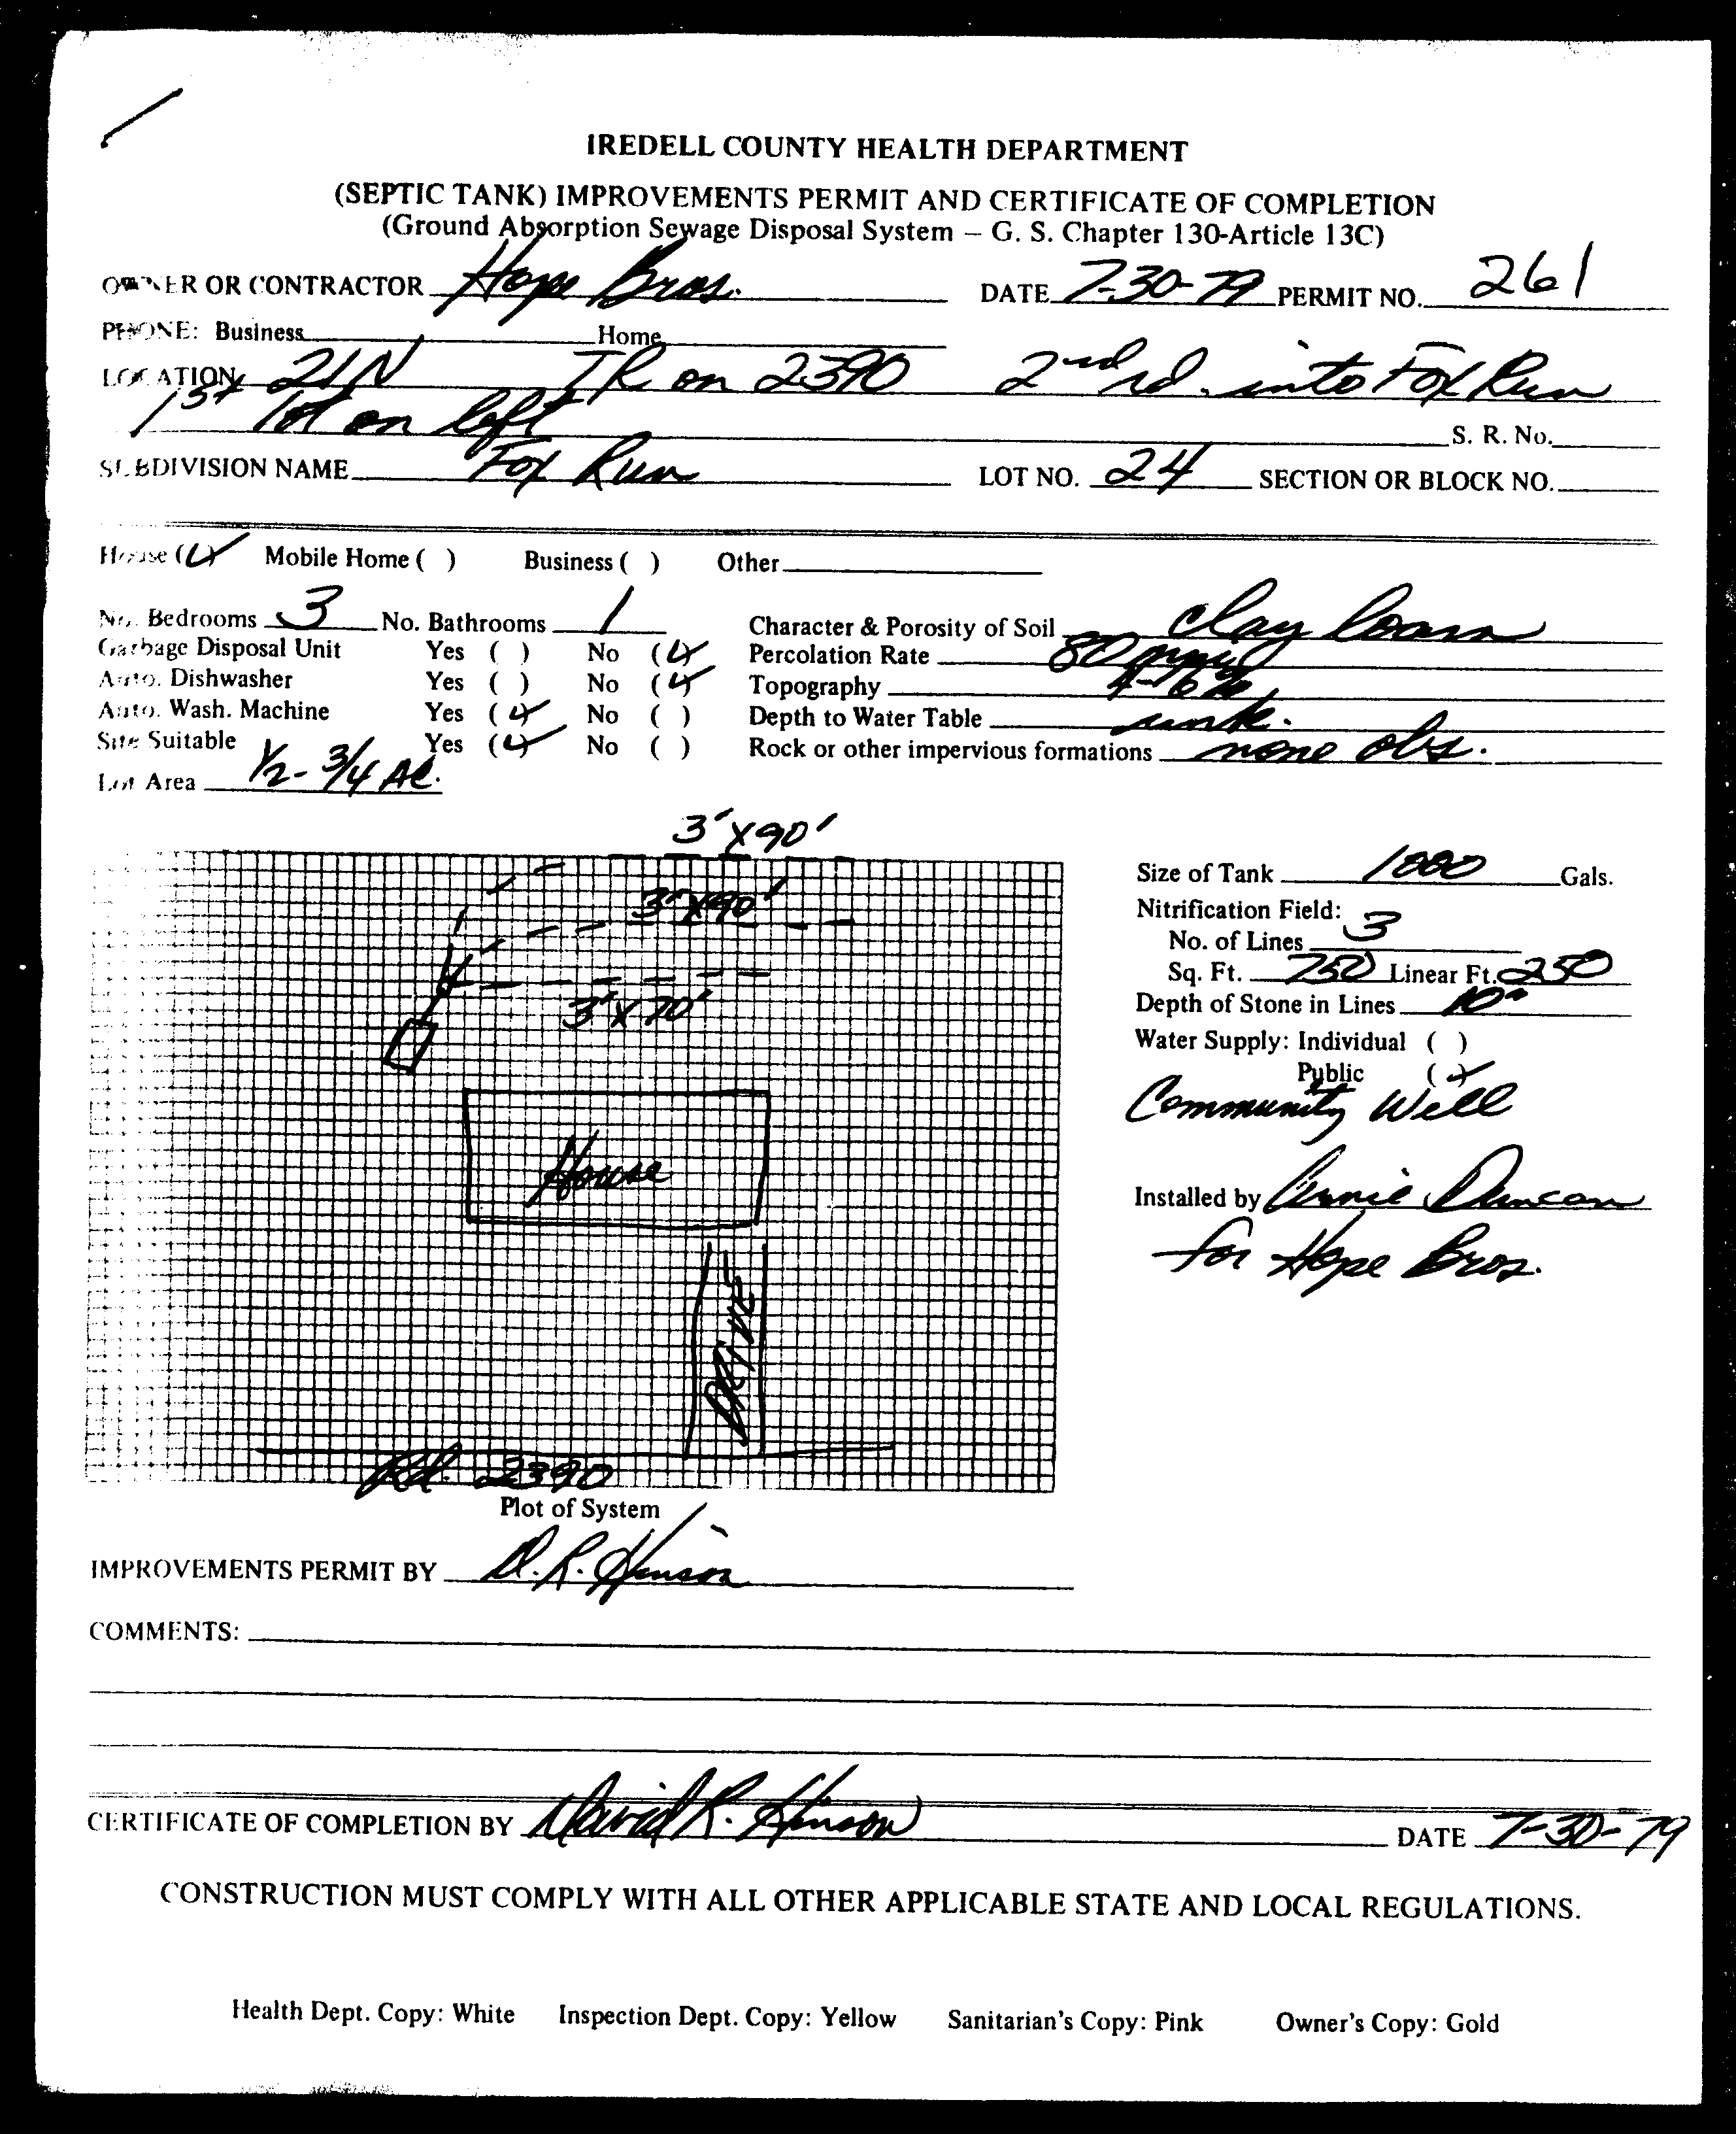 IREDELL COUNTY HEALTH DEPARTMENT
(SEPTIC TANK) IMPROVEMENTS PERMIT AND CERTIFICATE OF COMPLETION
(Ground Absorption Sewage Disposal System – G. S. Chapter 130-Article 13C)
OWNER OR CONTRACTOR Hope Bros. DATE 7-30-79 PERMIT NO. 261
PHONE: Business Home
LOCATION 21N TR on 2390 2nd rd. into Fox Run
1st lot on left S. R. No.
SUBDIVISION NAME Fox Run LOT NO. 24 SECTION OR BLOCK NO.
House (✓) Mobile Home ( ) Business ( ) Other
No. Bedrooms 3 No. Bathrooms 1 Character & Porosity of Soil clay loam
Garbage Disposal Unit Yes ( ) No (✓) Percolation Rate 80
Auto. Dishwasher Yes ( ) No (✓) Topography 4-6%
Auto. Wash. Machine Yes (✓) No ( ) Depth to Water Table unk.
Site Suitable Yes (✓) No ( ) Rock or other impervious formations none obs.
Lot Area 1/2 - 3/4 AC.
3'X90'
3'X90'
3'X70'
House
DRIVE
Rd. 2390
Plot of System
Size of Tank 1000 Gals.
Nitrification Field:
No. of Lines 3
Sq. Ft. 750 Linear Ft. 250
Depth of Stone in Lines 10"
Water Supply: Individual ( )
Public (✓)
Community Well
Installed by Duncan
for Hope Bros.
IMPROVEMENTS PERMIT BY D. R. Hinson
COMMENTS:
CERTIFICATE OF COMPLETION BY David R. Hinson DATE 7-30-79
CONSTRUCTION MUST COMPLY WITH ALL OTHER APPLICABLE STATE AND LOCAL REGULATIONS.
Health Dept. Copy: White Inspection Dept. Copy: Yellow Sanitarian's Copy: Pink Owner's Copy: Gold